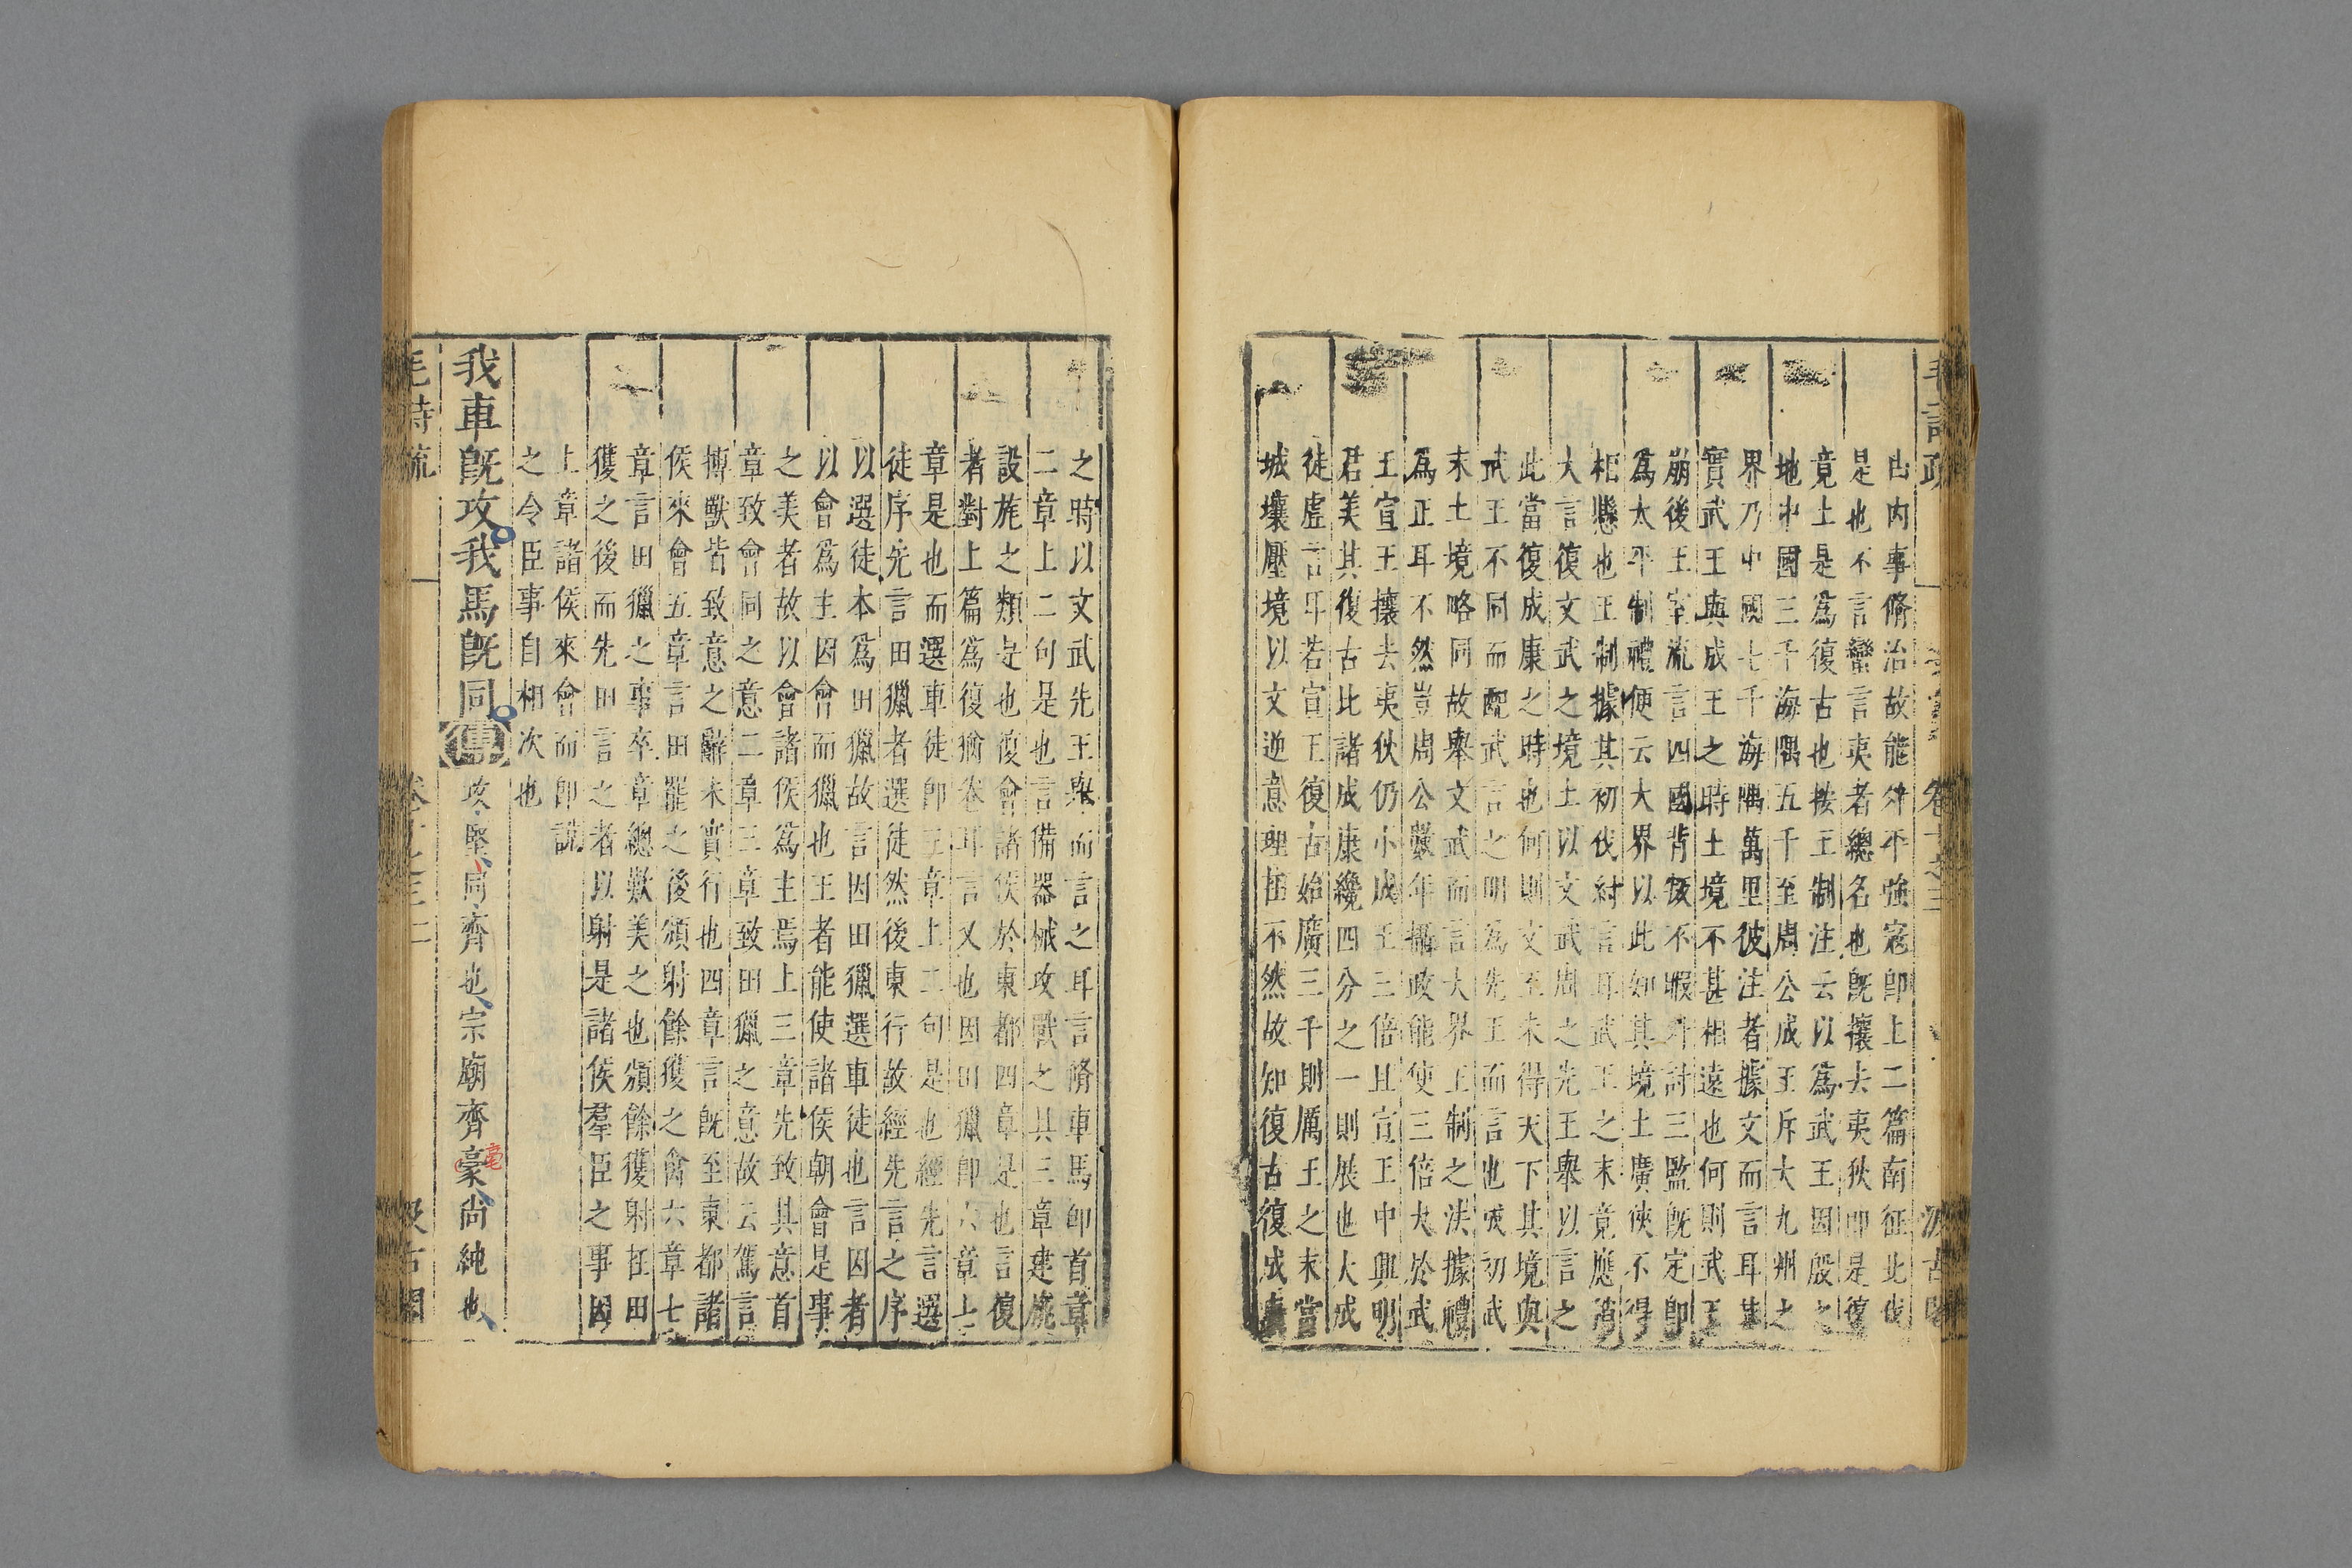 由内事脩治故能外平強寇即上二篇南征北伐
是也不言蠻言夷者總名也既攘去夷狄即是復
竟土是爲復古也按王制注云以爲武王因殷之
地中國三千海隅五千至周公成王斥大九州之
界乃中國七千海隅萬里彼注者據文而言耳其
實武王與成王之時土境不甚相遠也何則武王
崩後王室流言四國背叛不暇外討三監既定即
爲太平制禮便云大界以此知其境土廣狹不得
相懸也王制據其初伐紂言耳武王之末竟應稍
大言復文武之境土以文武周之先王舉以言之
此當復成康之時也何則文王未得天下其境與
武王不同而配武言之明爲先王而言也成初武
末土境略同故舉文武而言大界王制之法據禮
爲正耳不然豈周公數年攝政能使三倍大於武
王宣王攘去夷狄仍小成王三倍且宣王中興明
君美其復古比諸成康纔四分之一則展也大成
徒虛言耳若宣王復古始廣三千則厲王之末當
城壤壓境以文逆意理在不然故知復古復成康
之時以文武先王舉而言之耳言脩車馬即首章
二章上二句是也言備器械攻戰之具三章建旐
設旄之類是也復會諸侯於東都四章是也言復
者對上篇爲復猶卷耳言又也因田獵即六章上
章是也而選車徒即三章上二句是也經先言選
徒序先言田獵者選徒然後東行故經先言之序
以選徒本爲田獵故言因田獵選車徒也言因者
以會爲主因會而獵也王者能使諸侯朝會是事
之美者故以會諸侯爲主焉上三章先致其意首
章致會同之意二章三章致田獵之意故云駕言
搏獸皆致意之辭未實行也四章言既至東都諸
侯來會五章言田罷之後頒射餘獲之禽六章七
章言田獵之事卒章總歎美之也頒餘獲射在田
獲之後而先田言之者以射是諸侯羣臣之事因
上章諸侯來會而即說
之令臣事自相次也
我車既攻我馬既同傳攻堅同齊也宗廟齊豪尚純也
毫